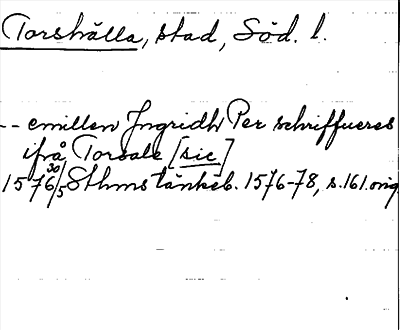 Torshälla, stad, Söd. l.
-- emillen Jngridh Per schriffueres
ifrå Torsale [sic]
1576 30/5 Sthms tänkeb. 1576-78, s. 161. orig.